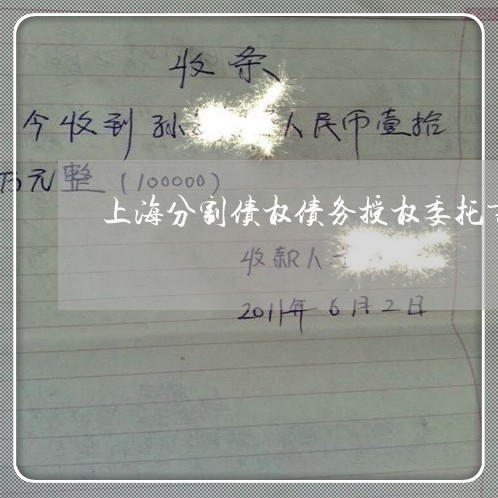 收条
今收到孙 人民币壹拾
万元整(100000)
上海分割债权债务授权委托
收款人
2011年6月2日